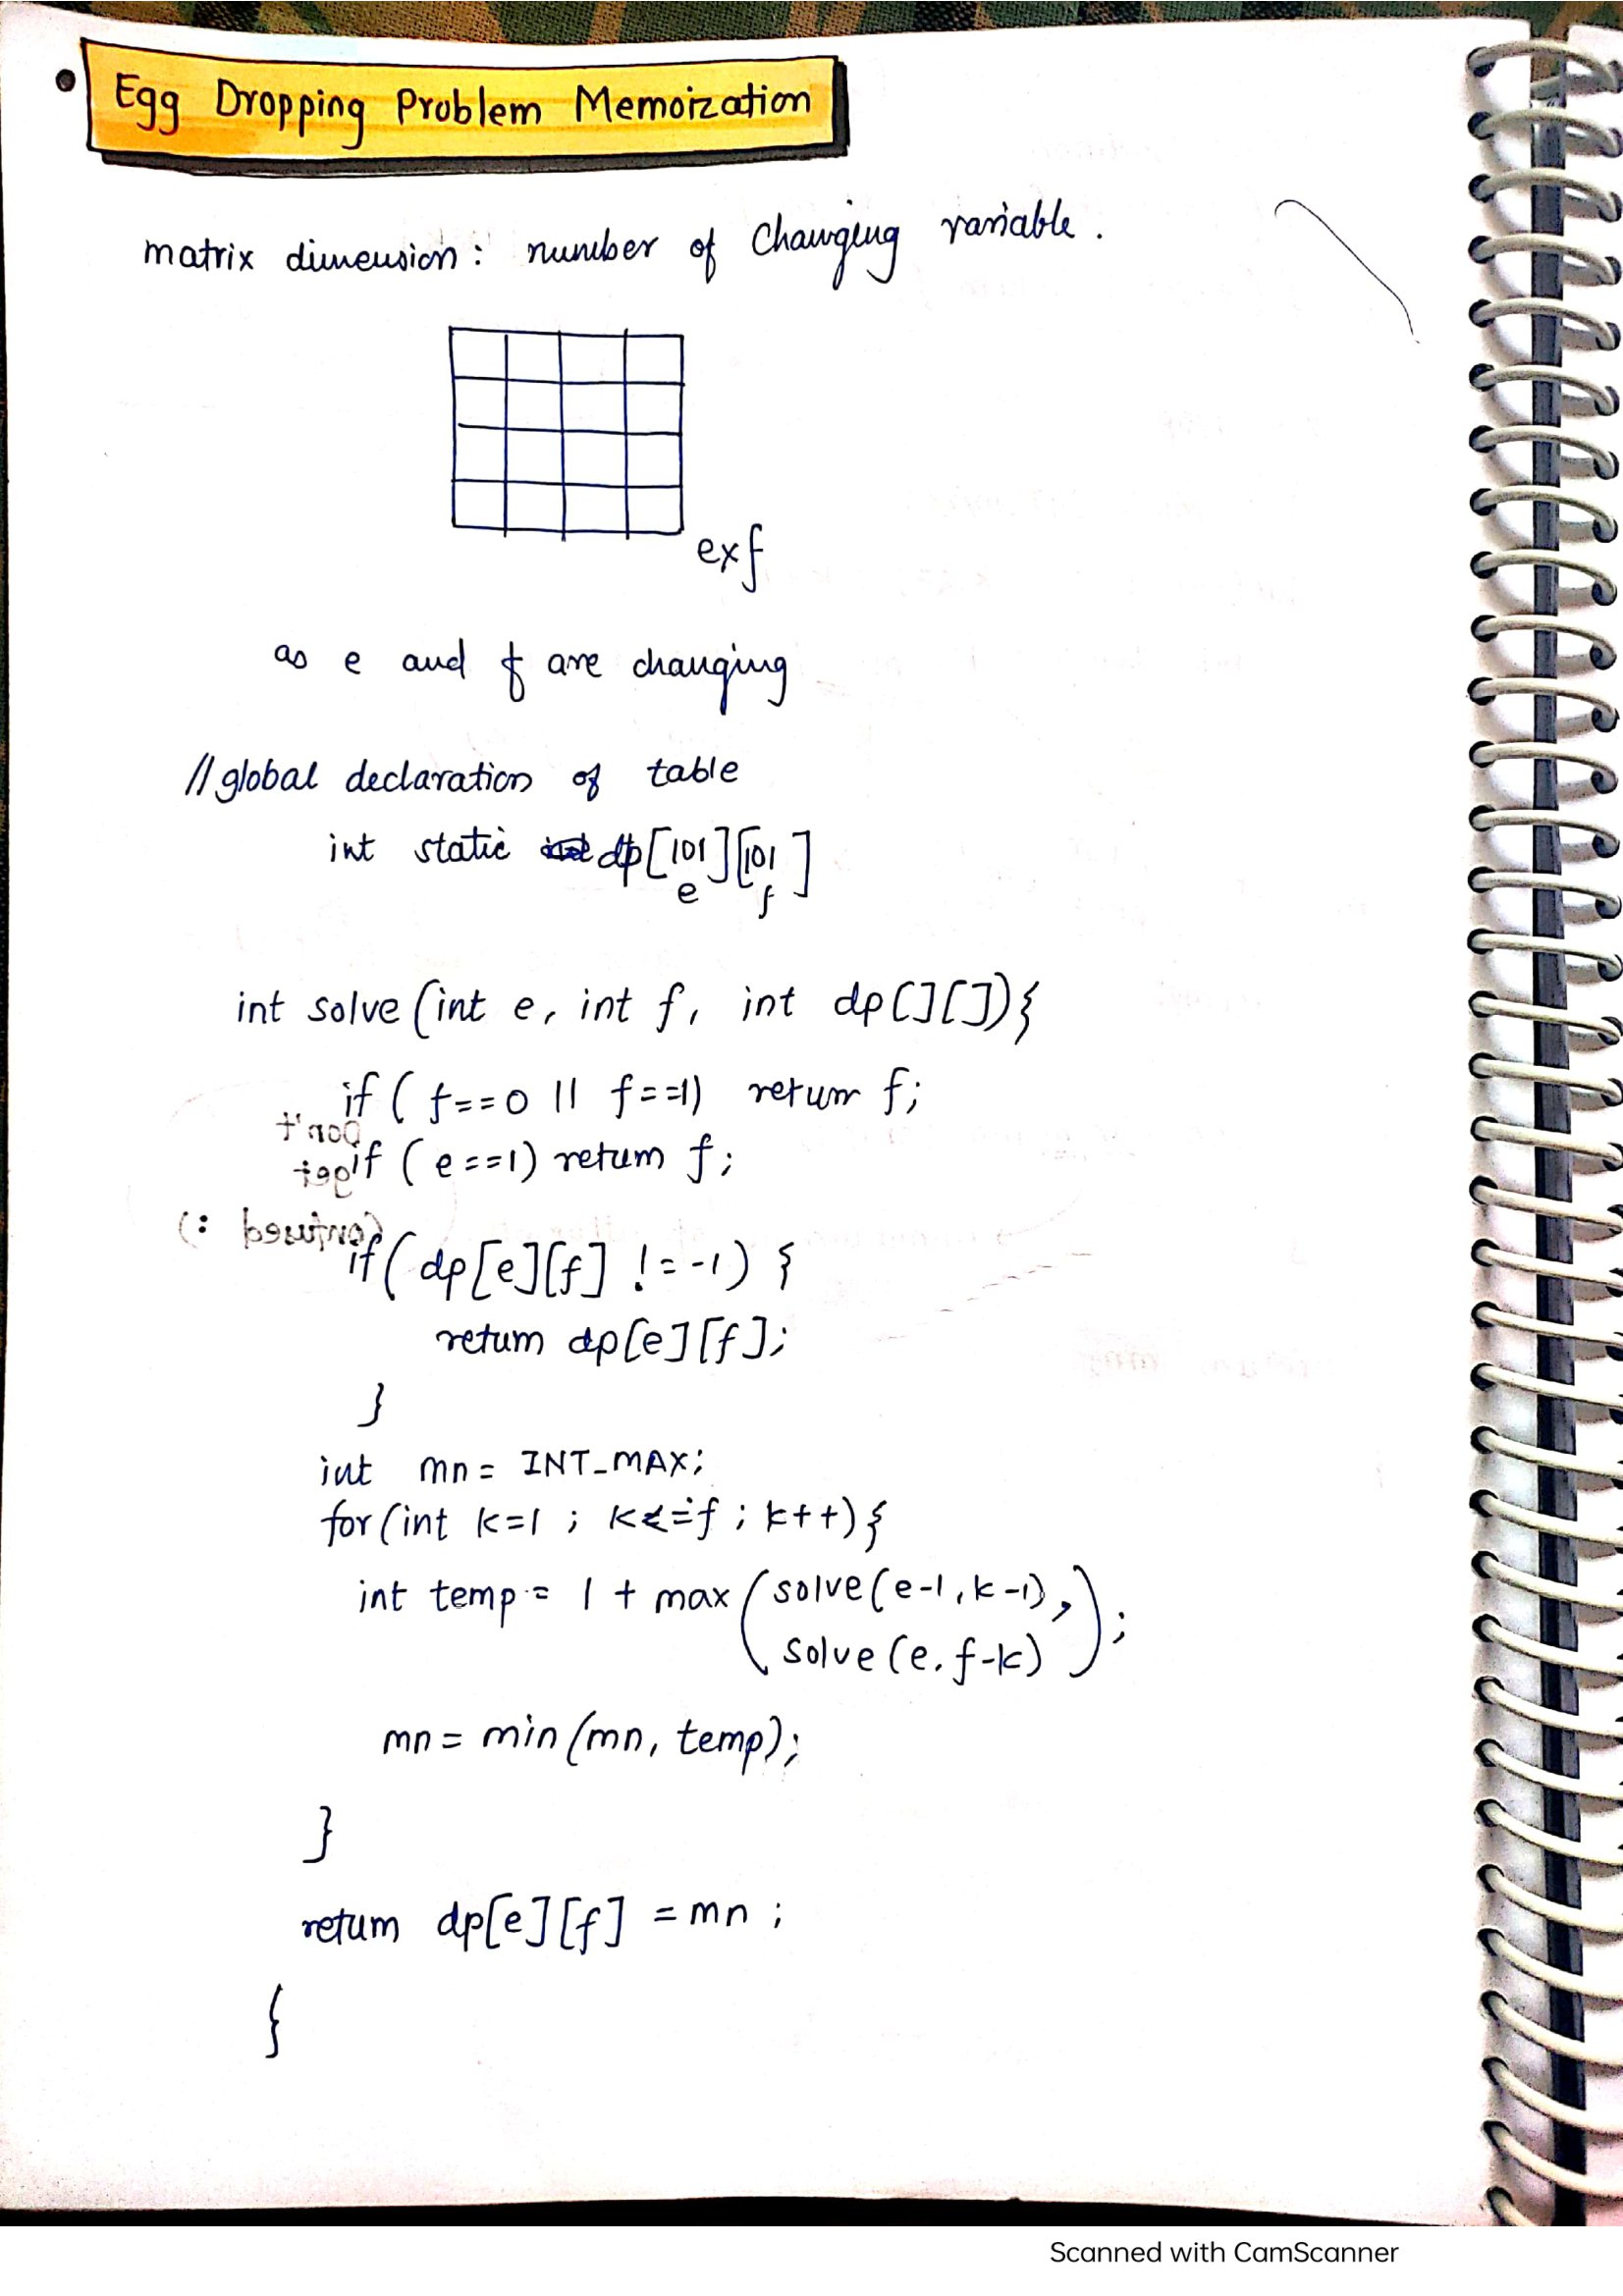 • Egg Dropping Problem Memoization
matrix dimension: number of changing variable.
exf
as e and f are changing
//global declaration of table
int static dp[101][101]
e f
int solve(int e, int f, int dp[][]){
if ( f==0 || f==1) return f;
Don't
if ( e==1) return f;
get
confused :)
if( dp[e][f] != -1) {
return dp[e][f];
}
int mn = INT_MAX;
for(int k=1 ; k<=f ; k++){
int temp = 1 + max(solve(e-1, k-1),
solve(e, f-k));
mn = min(mn, temp);
}
return dp[e][f] = mn ;
{
Scanned with CamScanner